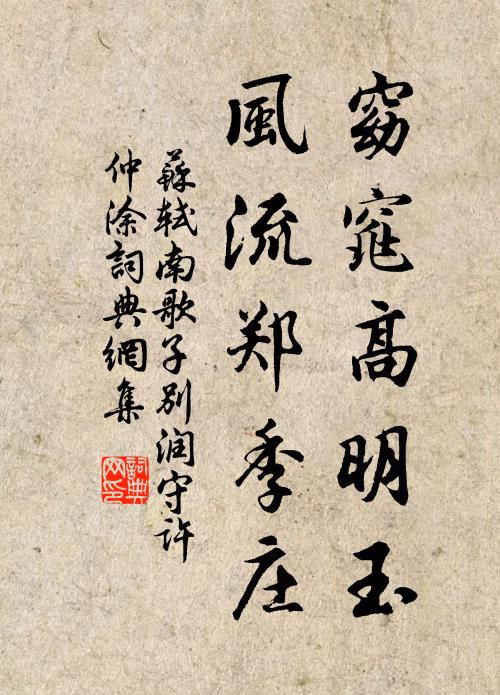 窈窕高明玉
風流郑季庄
蘇軾南歌子别润守許
仲涂詞典網集
詞典
网印